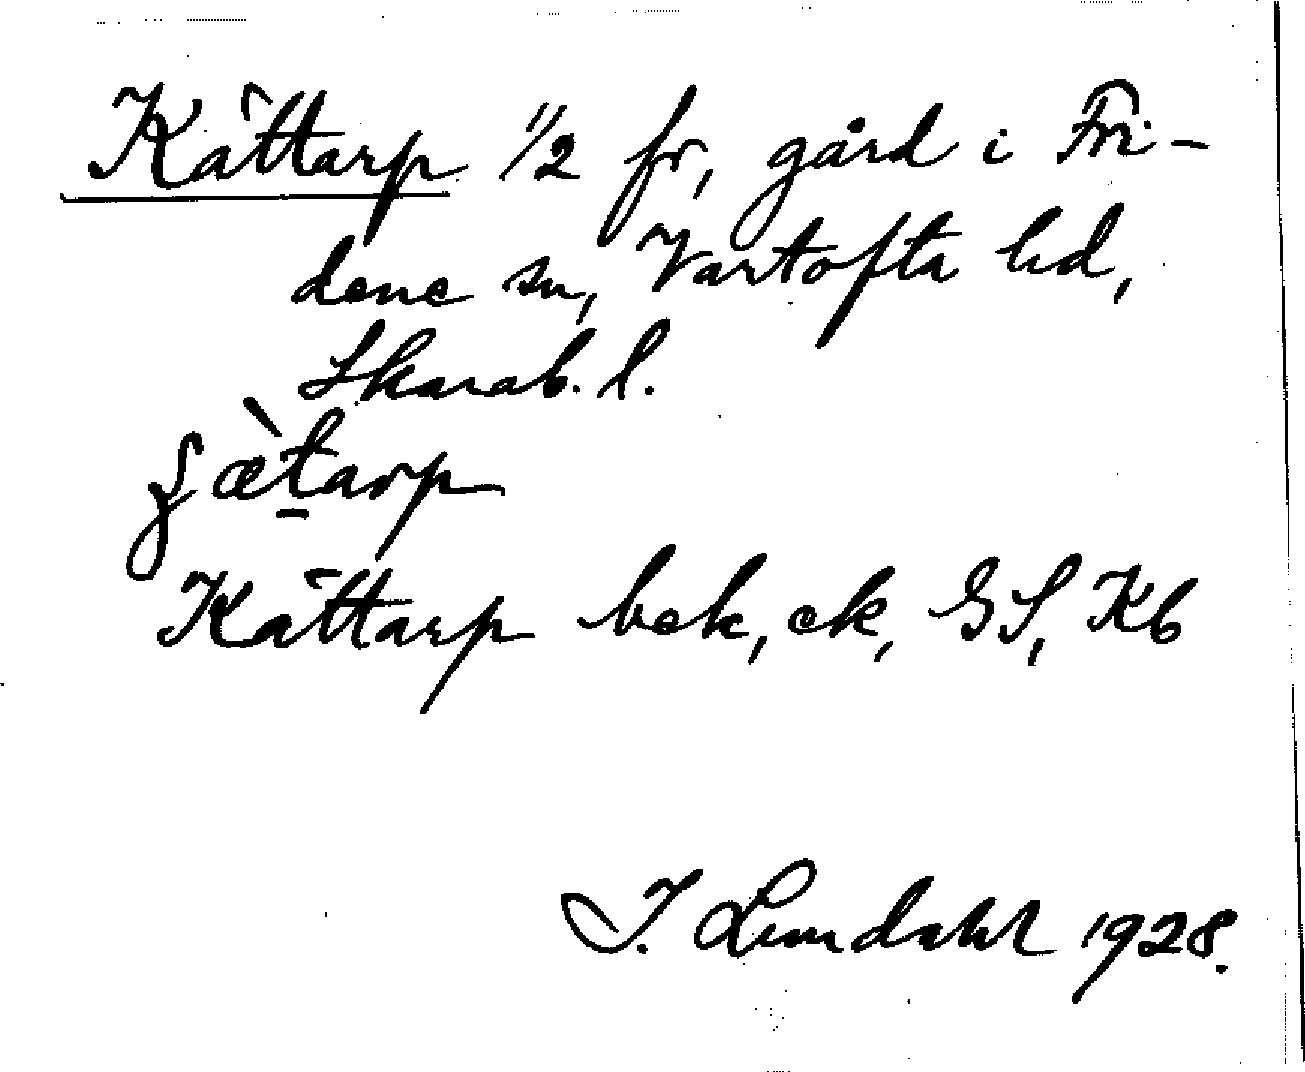 Kättarp 1/2 fr, gård i Fri-
dene sn, Vartofta hd,
Skarab. l.
ʃæ̀t̠arp
Kättarp bok, ek, GS, Kb
I. Lundahl 1928.